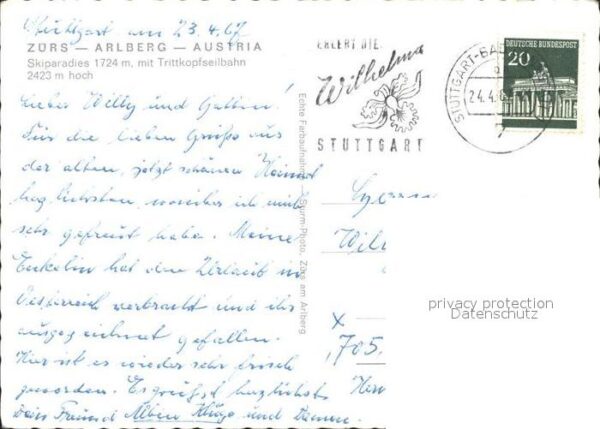 Stuttgart am 23.4.67
ZÜRS — ARLBERG — AUSTRIA
Skiparadies 1724 m, mit Trittkopfseilbahn
2423 m hoch
Lieber Willy und Gattin!
Für die lieben Grüße aus
der alten, jetzt schönen Heimat
herzlichsten, worüber ich mich
sehr gefreut habe. Meine
Enkelin hat den Urlaub in
Oesterreich verbracht und ihr
ausgezeichnet gefallen.
Hier ist es wieder sehr frisch
geworden. Es grüßt herzlichst
Dein Freund Alben und Damen.
Echte Farbaufnahme
Sturm-Photo, Zürs am Arlberg
ERLEBT DIE
Wilhelma
STUTTGART
STUTTGART-BA
24.4.6
DEUTSCHE BUNDESPOST
20
Wil
x
705
Her
privacy protection
Datenschutz